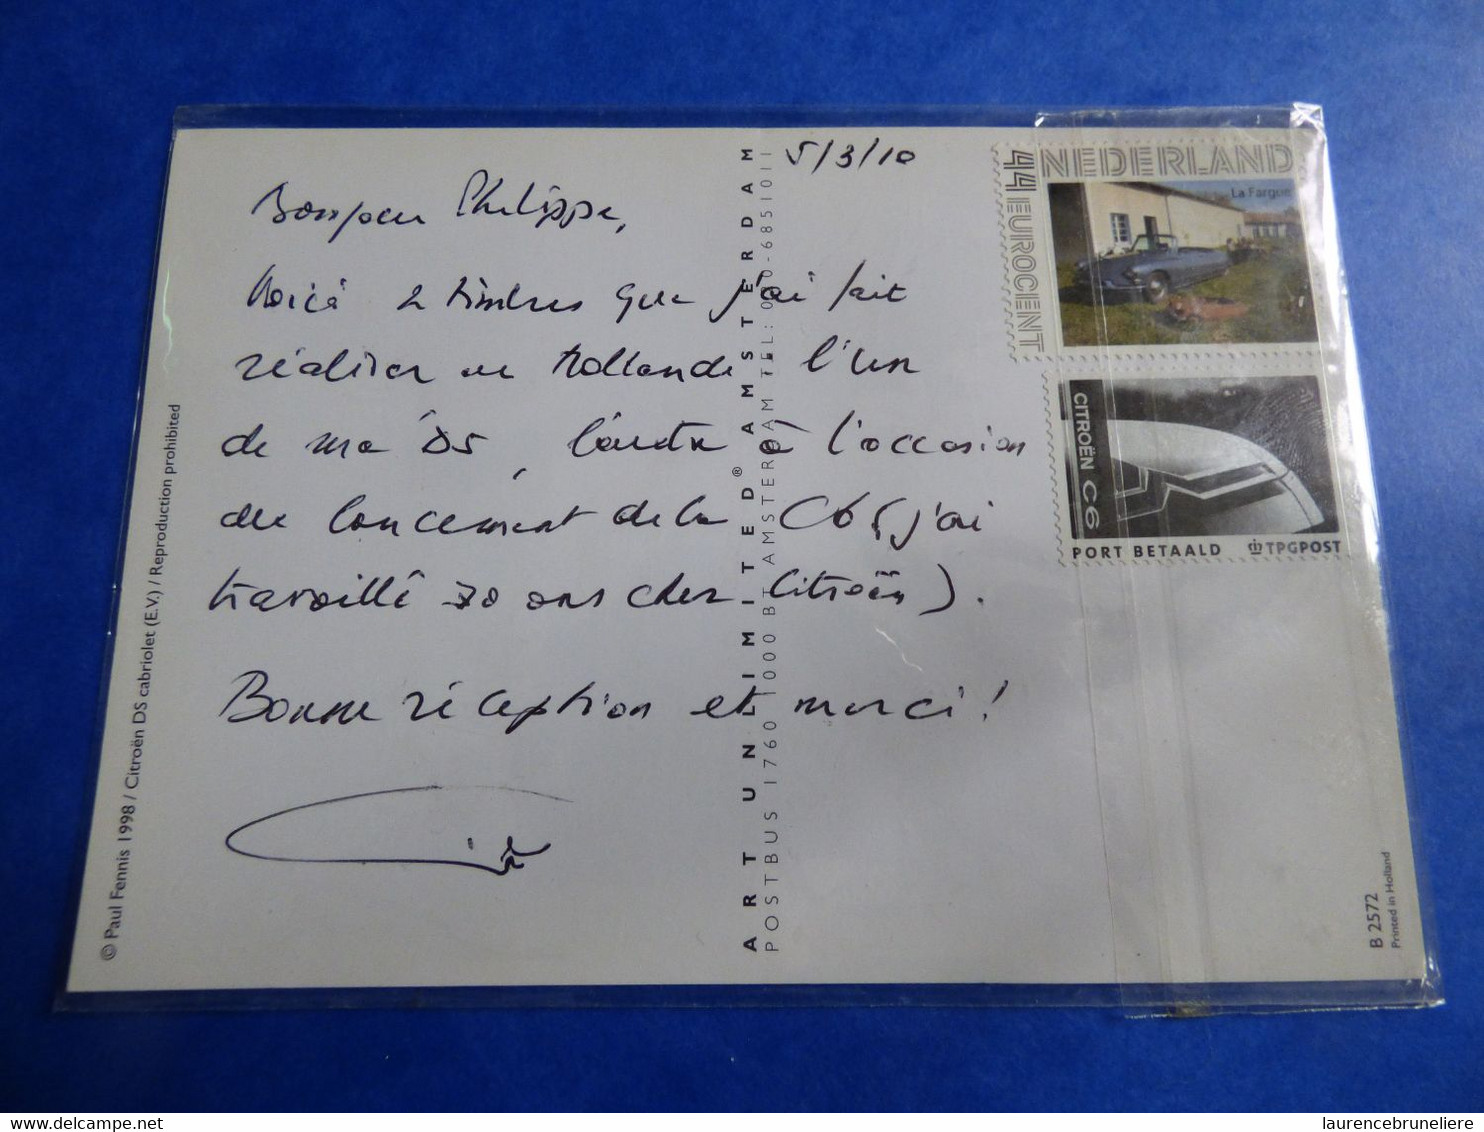 5/3/10
Bonjour Philippe,
Voici 2 timbres que j'ai fait
réaliser en Hollande l'un
de ma DS, l'autre à l'occasion
du lancement de la C6 (j'ai
travaillé 30 ans chez Citroën).
Bonne réception et merci !
© Paul Fennis 1998 / Citroën DS cabriolet (E.V.) / Reproduction prohibited
ART UNLIMITED® AMSTERDAM
POSTBUS 1760 1000 BT AMSTERDAM TEL: 020-6851011
NEDERLAND
44 EUROCENT
La Fargue
CITROËN C6
PORT BETAALD TPGPOST
B 2572
Printed in Holland
delcampe.net
laurencebruneliere